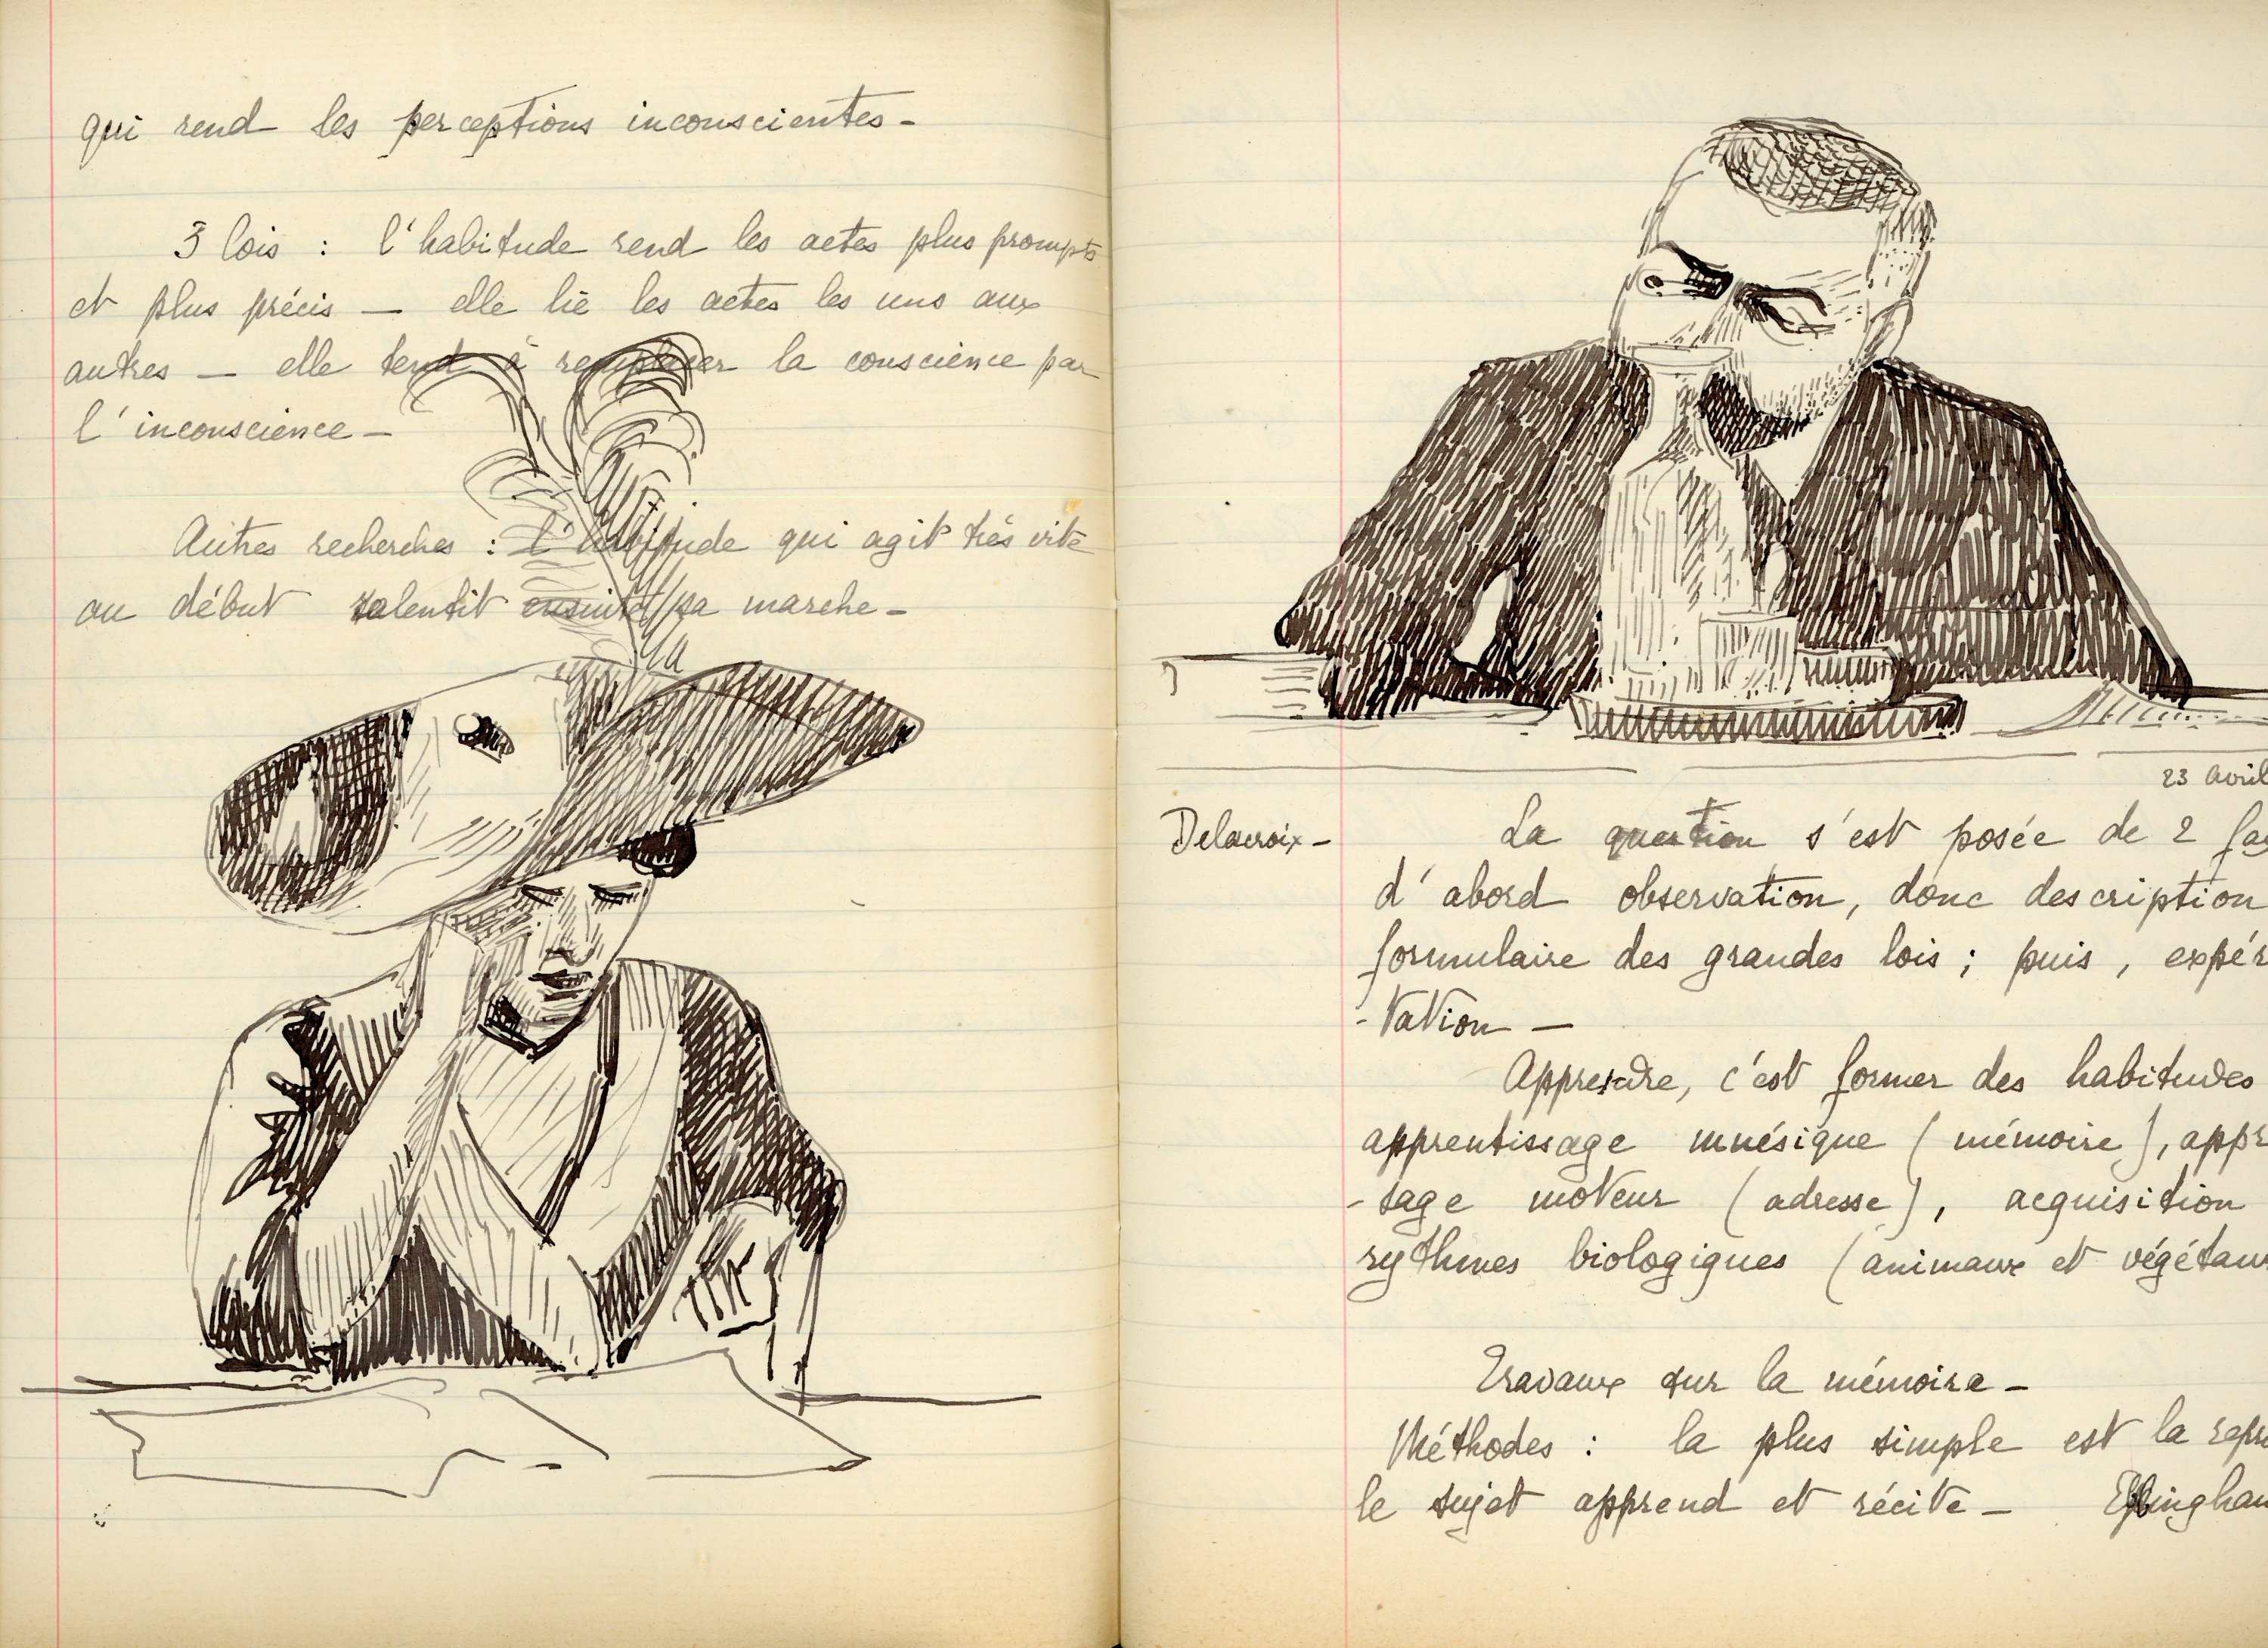 qui rend les perceptions inconscientes -
3 lois : l'habitude rend les actes plus prompts
et plus précis — elle lie les actes les uns aux
autres — elle tend à remplacer la conscience par
l'inconscience -
Autres recherches : l'habitude qui agit très vite
au début ralentit ensuite sa marche -
23 Avril
Delacroix -
La question s'est posée de 2 faç
d'abord observation, donc description
formulaire des grandes lois ; puis, expér
- tation —
Apprendre, c'est former des habitudes
apprentissage mnésique (mémoire), appr
- sage moteur (adresse), acquisition
rythmes biologiques (animaux et végétaux
Travaux sur la mémoire -
Méthodes : la plus simple est la repr
le sujet apprend et récite — Ebbinghau